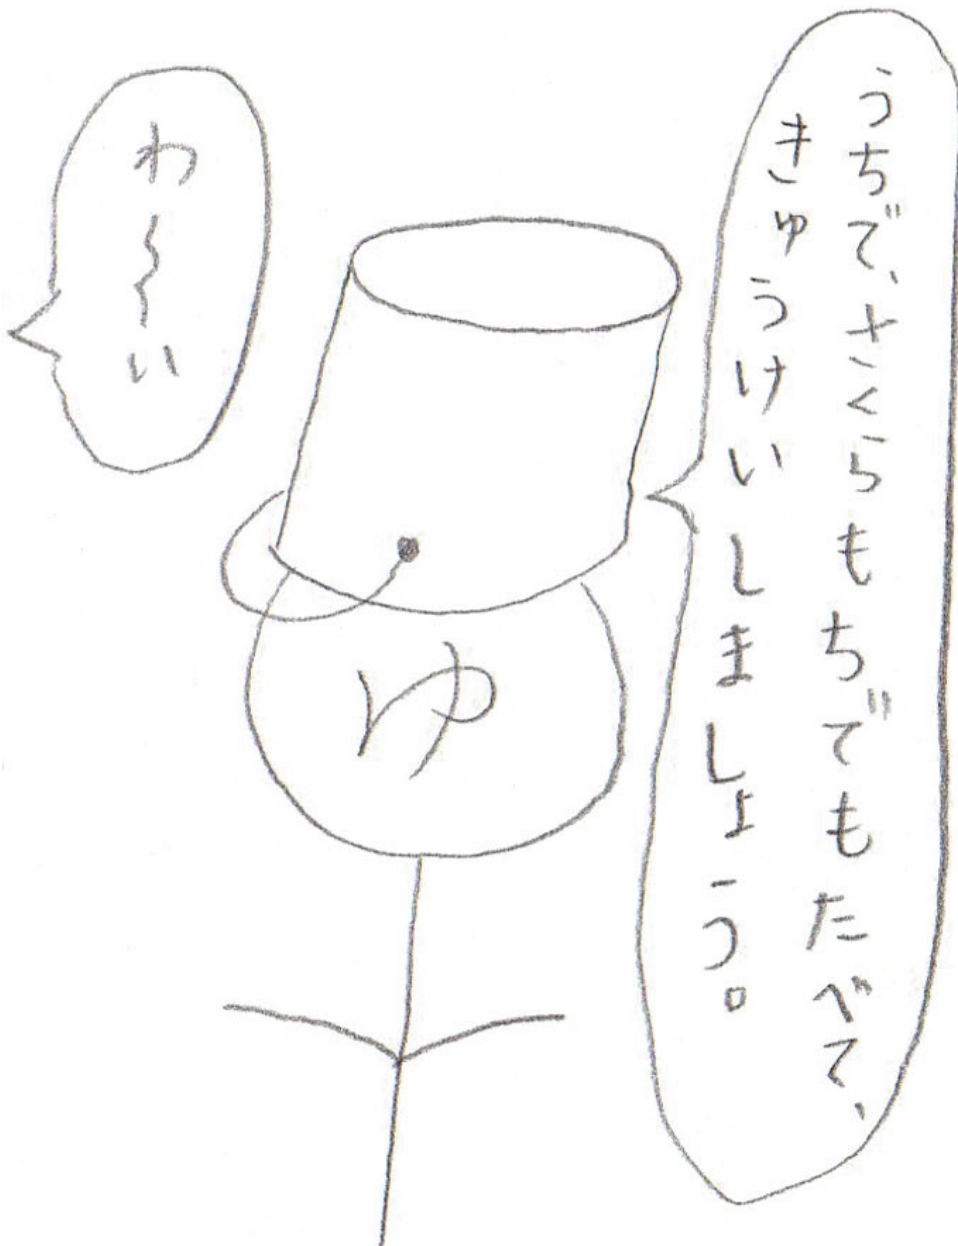 うちで、さくらもちでもたべて、
きゅうけいしましょう。
ゆ
わ～～い